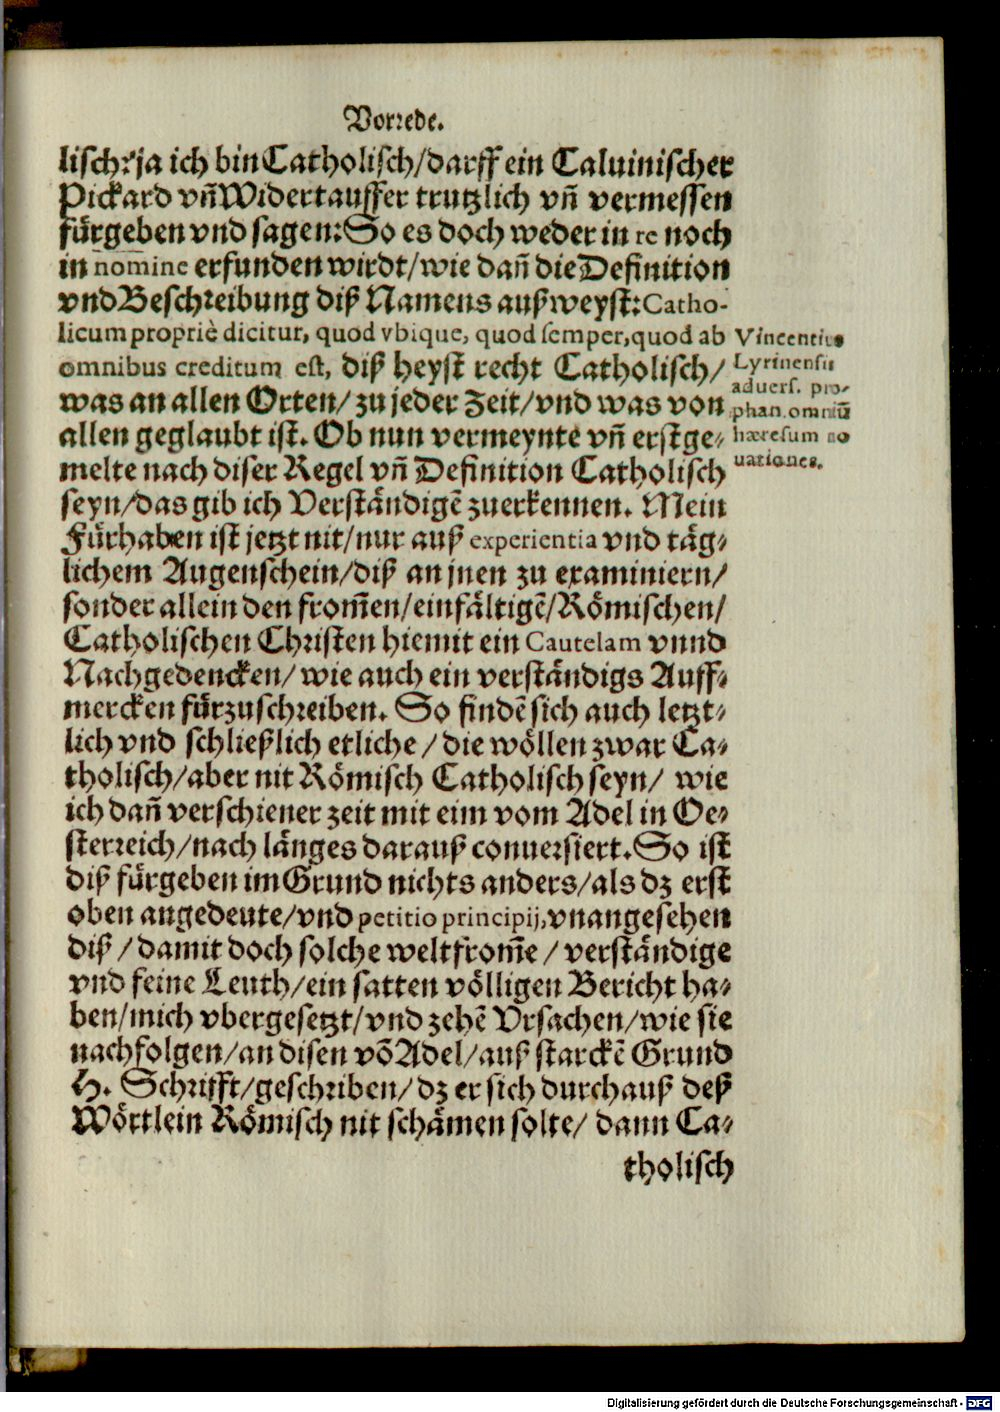 Vorrede.
lisch: ja ich bin Catholisch/ darff ein Caluinischer
Pickard vñ Widertauffer trutzlich vñ vermessen
fürgeben vnd sagen: So es doch weder in re noch
in nomine erfunden wirdt/ wie dañ die Definition
vnd Beschreibung diß Namens außweyst: Catho-
licum propriè dicitur, quod vbique, quod semper, quod ab
omnibus creditum est, diß heyst recht Catholisch/
was an allen Orten/ zu jeder Zeit/ vnd was von
allen geglaubt ist. Ob nun vermeynte vñ erstge-
melte nach diser Regel vñ Definition Catholisch
seyn/ das gib ich Verständigẽ zuerkennen. Mein
Fürhaben ist jetzt nit/ nur auß experientia vnd täg-
lichem Augenschein/ diß an jnen zu examiniern/
sonder allein den from̃en/ einfältigẽ/ Römischen/
Catholischen Christen hiemit ein Cautelam vnnd
Nachgedencken/ wie auch ein verständigs Auff-
mercken fürzuschreiben. So findẽ sich auch letzt-
lich vnd schließlich etliche/ die wöllen zwar Ca-
tholisch/ aber nit Römisch Catholisch seyn/ wie
ich dañ verschiener zeit mit eim vom Adel in Oe-
sterreich/ nach länges darauß conuersiert. So ist
diß fürgeben im Grund nichts anders/ als dz erst
oben angedeute/ vnd petitio principij, vnangesehen
diß/ damit doch solche weltfrom̃e/ verständige
vnd feine Leuth/ ein satten völligen Bericht ha-
ben/ mich vbergesetzt/ vnd zehẽ Vrsachen/ wie sie
nachfolgen/ an disen võ Adel/ auß starckẽ Grund
H. Schrifft/ geschriben/ dz er sich durchauß deß
Wörtlein Römisch nit schämen solte/ dann Ca-
tholisch
Vincentius
Lyrinensis
aduers. pro-
phan. omniũ
hæresum no
uationes.
Digitalisierung gefördert durch die Deutsche Forschungsgemeinschaft - DFG